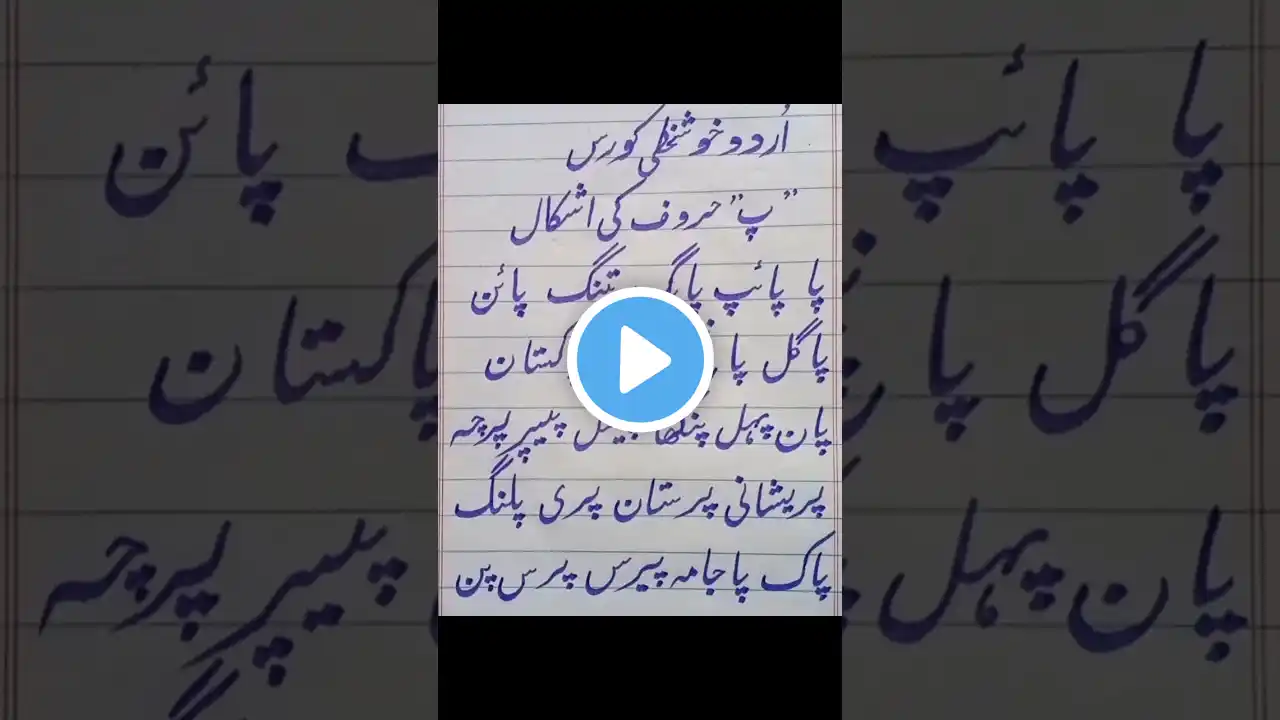 اُردو خوشخطی کورس
”پ“ حروف کی اشکال
پا پائپ پتنگ پائن
پاگل پاکستان
پان پہل پنکھا پیپر پرچہ
پریشانی پرستان پری پلنگ
پاک پاجامہ پیرس پرس پن